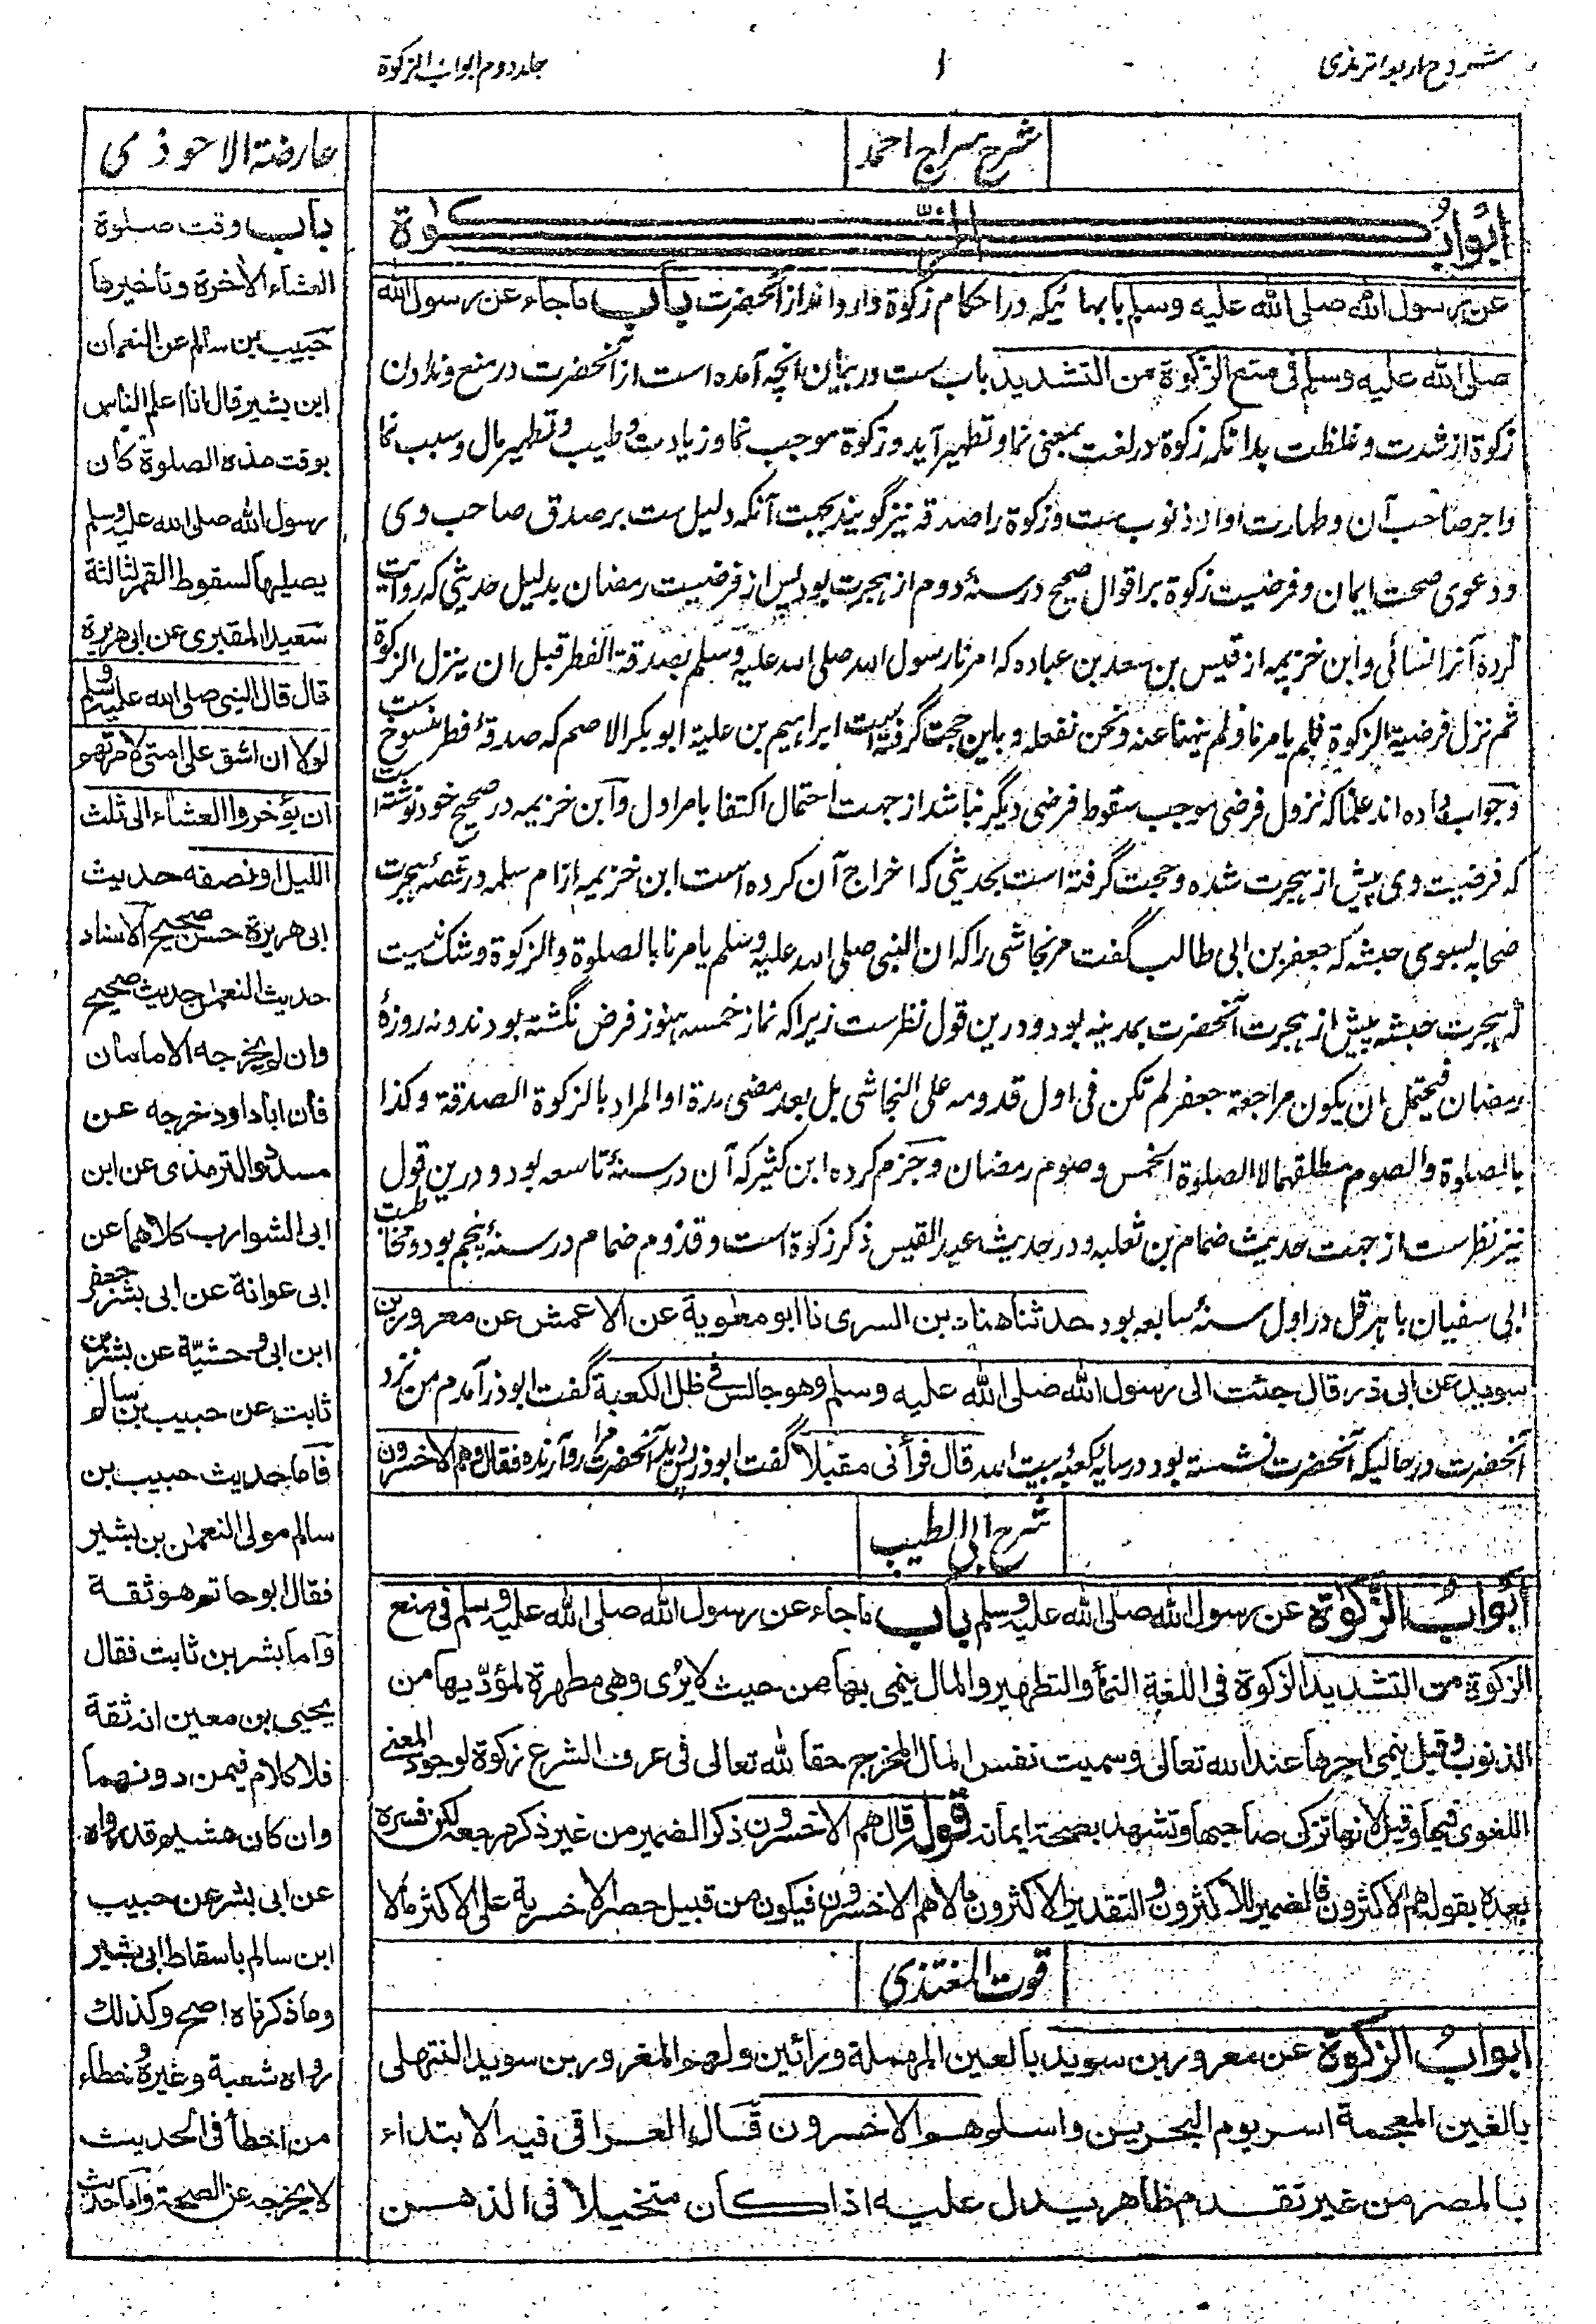 شروح اربعه ترمذی
۱
جلد دوم ابواب الزکوة
شرح سراج احمد
ابواب الزکوة
عن رسول الله صلی الله علیه وسلم بابهائیکه در احکام زکوة وارد اند از آنحضرت باب ماجاء عن رسول الله
صلی الله علیه وسلم فی منع الزکوة من التشدید باب ست در بیان انچه آمده است از آنحضرت در منع و ندادن
زکوة از شدت و غلظت بدانکه زکوة در لغت بمعنی نما و تطهیر آید و زکوة موجب نما و زیادت و طیب و تطهیر مال و سبب نما
و اجر صاحب آن و طهارت او از ذنوب ست و زکوة را صدقه نیز گویند بجهت آنکه دلیل ست بر صدق صاحب وی
و دعوی صحت ایمان و فرضیت زکوة بر اقوال صحیح در سنهٔ دوم از هجرت بود پس از فرضیت رمضان بدلیل حدیثی که روایت
کرده آنرا نسائی و ابن خزیمه از قیس بن سعد بن عباده که امرنا رسول الله صلی الله علیه وسلم بصدقة الفطر قبل ان ینزل الزکوة
ثم نزل فرضیة الزکوة فلم یامرنا ولم ینهنا عنه ونحن نفعله و باین حجت گرفته است ابراهیم بن علیة ابوبکر الاصم که صدقهٔ فطر منسوخ ست
و جواب داده اند علما که نزول فرضی موجب سقوط فرضی دیگر نباشد از جهت احتمال اکتفا بامر اول و ابن خزیمه در صحیح خود نوشته است
که فرضیت وی پیش از هجرت شده و حجت گرفته است بحدیثی که اخراج آن کرده است ابن خزیمه از ام سلمه در قصهٔ هجرت
صحابه بسوی حبشه که جعفر بن ابی طالب گفت مر نجاشی را که ان النبی صلی الله علیه وسلم یامرنا بالصلوة والزکوة و شک نیست
که هجرت حبشه پیش از هجرت آنحضرت بمدینه بود و درین قول نظر ست زیرا که نماز خمسه هنوز فرض نگشته بودند و نه روزهٔ
رمضان فیحتمل ان یکون مراجعة جعفر لم تکن فی اول قدومه علی النجاشی بل بعد مضی مدة او المراد بالزکوة الصدقة وکذا
بالصلوة والصوم مطلقهما لا الصلوة الخمس وصوم رمضان و جزم کرده ابن کثیر که آن در سنهٔ تاسعه بود و درین قول
نیز نظر ست از جهت حدیث ضمام بن ثعلبه و در حدیث عبد القیس ذکر زکوة است و قدوم ضمام در سنهٔ پنجم بود و مخاطبت
ابی سفیان با هرقل در اول سنهٔ سابعه بود حدثنا هناد بن السری نا ابو معویة عن الاعمش عن معرور بن
سوید عن ابی ذر قال جئت الی رسول الله صلی الله علیه وسلم وهو جالس فی ظل الکعبة گفت ابوذر آمدم من نزد
آنحضرت درحالیکه آنحضرت نشسته بود در سایه کعبه بیت الله قال فرأنی مقبلا گفت ابوذر پس دید آنحضرت مرا رو آرنده فقال هم الاخسرون
شرح ابی الطیب
ابواب الزکوة عن رسول الله صلی الله علیه وسلم باب ماجاء عن رسول الله صلی الله علیه وسلم فی منع
الزکوة من التشدید الزکوة فی اللغة النمأ والتطهیر والمال ینمی بها من حیث لا یری وهی مطهرة لمؤدیها من
الذنوب وقیل ینمی اجرها عند الله تعالی وسمیت نفس المال المخرج حقا لله تعالی فی عرف الشرع زکوة لوجود المعنی
اللغوی فیها وقیل لانها تزکی صاحبها وتشهد بصحة ایمانه قوله قال هم الاخسرون ذکر الضمیر من غیر ذکر مرجعه لکن فسره
بعده بقوله هم الاکثرون فالضمیر للاکثرون والتقدیر الاکثرون مالا هم الاخسرون فیکون من قبیل حصر الاخسریة علی الاکثر مالا
قوت المغتذی
ابواب الزکوة عن معرور بن سوید بالعین المهملة ورائین ولهم المغرور بن سوید
بالغین المعجمة اسر یوم البحرین واسلم هم الاخسرون قال العراقی فیه الابتداء
بالمضمر من غیر تقدم ظاهر یدل علیه اذا کان متخیلا فی الذهن
عارضة الاحوذی
باب وقت صلوة
العشاء الاخرة وتاخیرها
حبیب بن سالم عن النعمان
ابن بشیر قال انا اعلم الناس
بوقت هذه الصلوة کان
رسول الله صلی الله علیه وسلم
یصلیها لسقوط القمر لثالثة
سعید المقبری عن ابی هریرة
قال قال النبی صلی الله علیه وسلم
لولا ان اشق علی امتی لامرتهم
ان یؤخروا العشاء الی ثلث
اللیل او نصفه حدیث
ابی هریرة حسن صحیح الاسناد
حدیث النعمان حدیث صحیح
وان لم یخرجه الامامان
فان ابا داود خرجه عن
مسدد والترمذی عن ابن
ابی الشوارب کلاهما عن
ابی عوانة عن ابی بشر جعفر
ابن ابی وحشیة عن بشر بن
ثابت عن حبیب بن سالم
فاما حدیث حبیب بن
سالم مولی النعمن بن بشیر
فقال ابو حاتم هو ثقة
واما بشر بن ثابت فقال
یحیی بن معین انه ثقة
فلا کلام فیمن دونهما
وان کان هشیم قد رواه
عن ابی بشر عن حبیب
ابن سالم باسقاط ابی بشیر
وما ذکرناه اصح وکذلک
رواه شعبة وغیره وخطاء
من اخطأ فی الحدیث
لا یخرجه عن الصحة واما حدیث